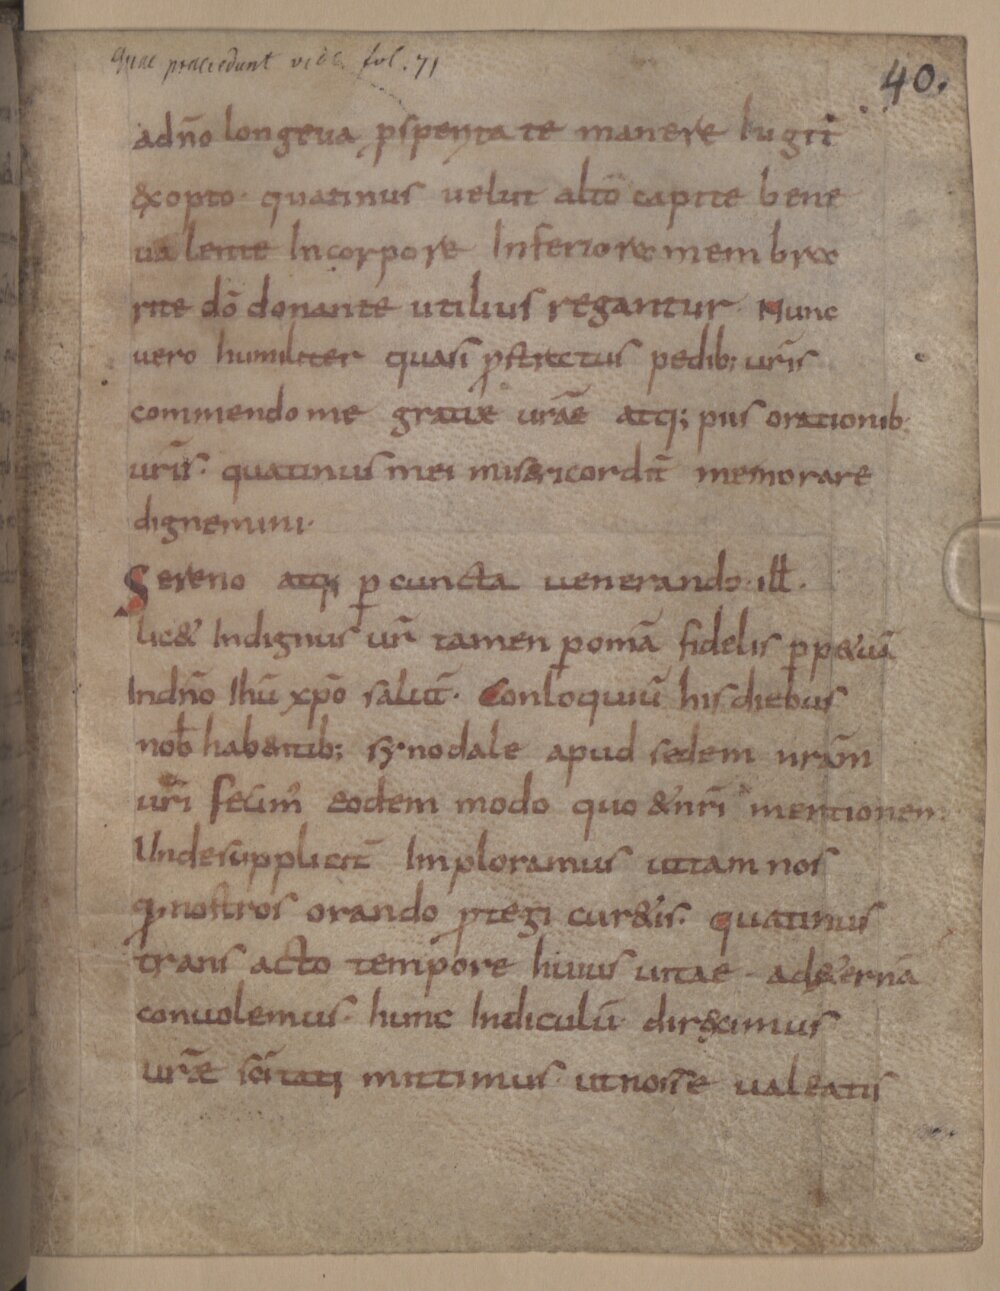 Quae praecedunt vide fol. 71
40.
adn̄o longeva ꝓsperitate manere Iugit̄
&opto· quatinus velut alto capite bene
valente Incorpore Inferiora membra
rite dō donante utilius regantur· Nunc
vero humiliter quasi ꝓstratus pedib; ur̄is
commendo me gratiae urāe atq; piis orationib·
ur̄is· quatinus mei misericordit̄ memorare
dignemini·
Sereno atq; ꝑ cuncta venerando· ill̄·
lic& Indignus ur̄ tamen ꝑ om̄a fidelis ꝑp&uā
Indn̄o Ihū xp̄o salut̄· Conloquiū his diebus
nob̄ habentib; synodale apud sedem urām
ur̄i fecim᾿ eodem modo quo & nr̄i mentionem
Unde supplicit̄ Imploramus ut tam nos
ꝗnostros orando ꝓtegi cur&is· quatinus
transacto tempore huius vitae· ad &ernā
convolemus· hunc Indiculū dir&imus
urāe sc̄itati mittimus· ut nosse valeatis